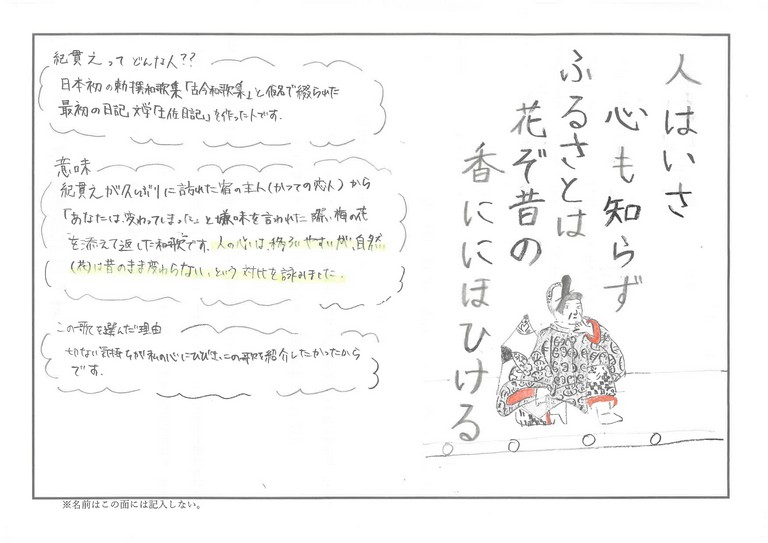 人はいさ
心も知らず
ふるさとは
花ぞ昔の
香ににほひける
紀貫えって どんな人??
日本初の勅撰和歌集「古今和歌集」と仮名で綴られた
最初の日記文学「土佐日記」を作った人です.
意味
紀貫えが久しぶりに訪れた宿の主人(かつての恋人) から
「あなたは、変わってしまった」と嫌味を言われた際、梅の花
を添えて返した和歌です. 人の心は、移ろいやすいが、自然
(花)は昔のまま変わらない、という 対比を詠みました.
この歌を選んだ理由
切ない気持ちが私の心にひびき、この歌を紹介したかったから
です.
※名前はこの面には記入しない。